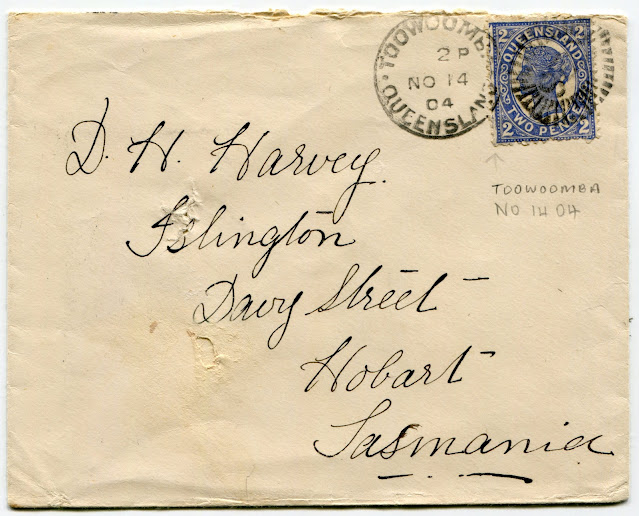 TOOWOOMBA
2 P
NO 14
04
QUEENSLAND
2 QUEENSLAND 2
2 TWO PENCE 2
D. H. Harvey.
TOOWOOMBA
NO 14 04
Islington
Davy Street
Hobart
Tasmania